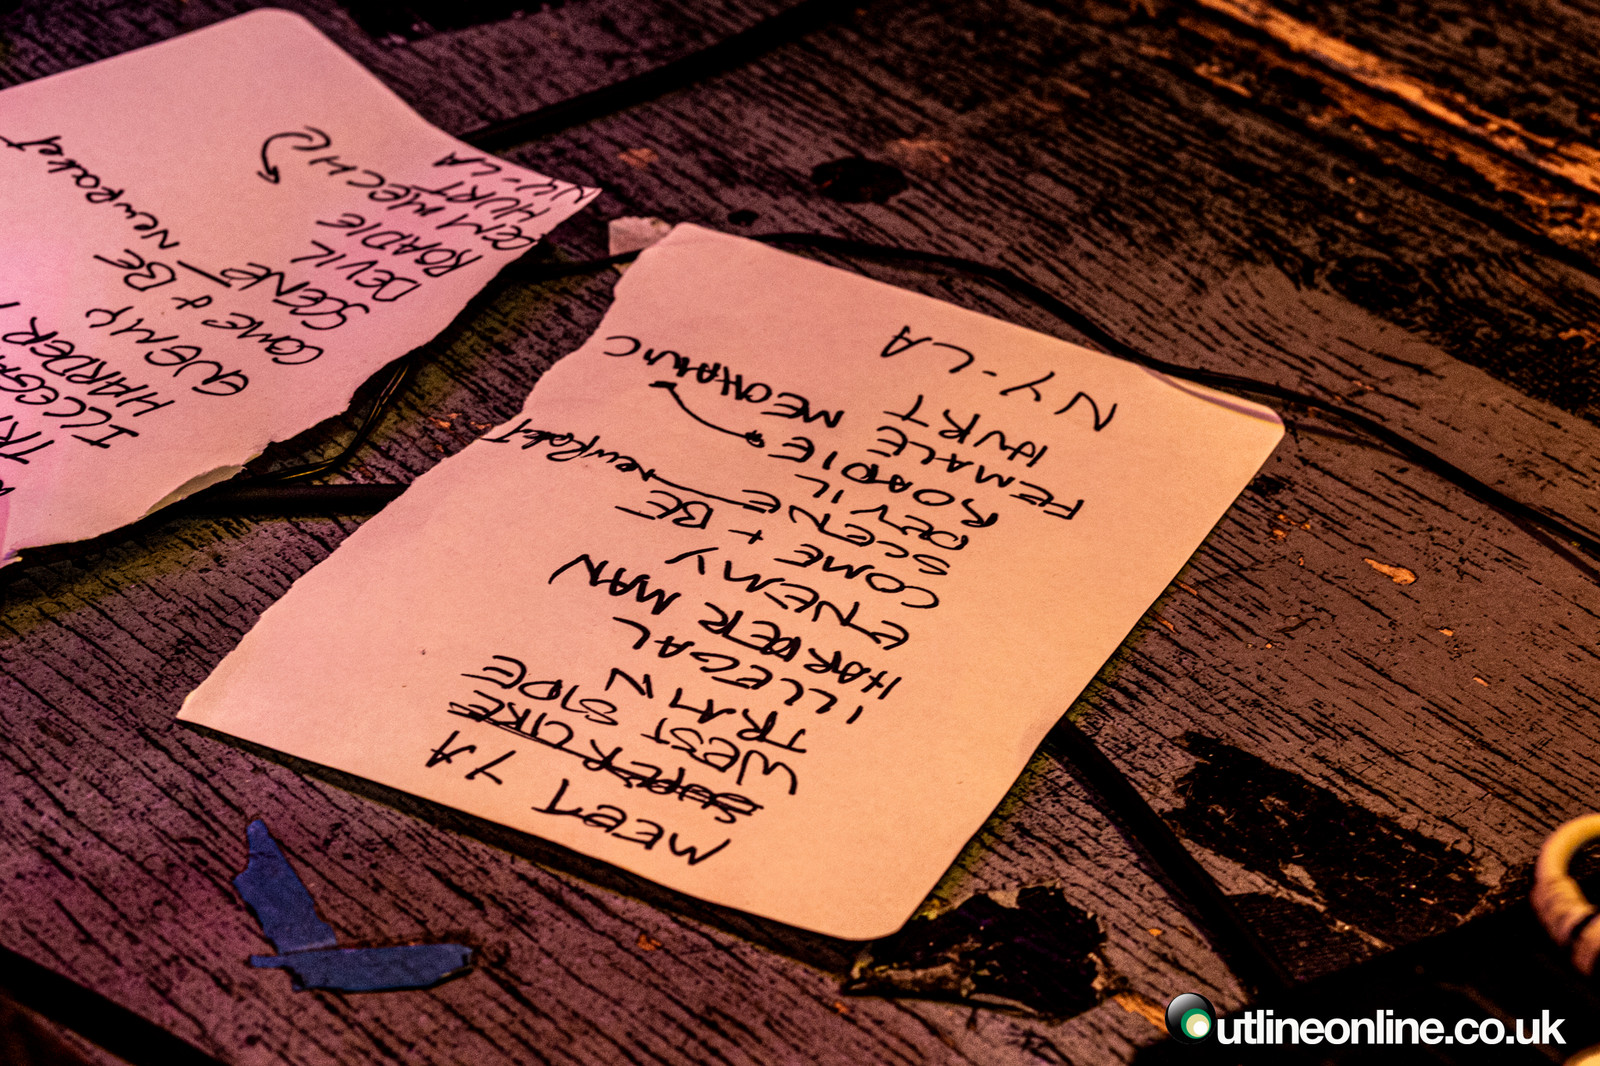 MEET YA
SUPERLIKE
WEST SIDE
TRAIN
ILLEGAL
HARDER MAN
ENEMY
COME + BE
SCENE
DEVIL
ROADIE
FEMALE MECHANIC
HURT
NY-LA
ILLEGA
HARDER
ENEMY
COME & BE
SCENE
DEVIL
ROADIE
FEM MECH
HURT
NY-LA
Outlineonline.co.uk